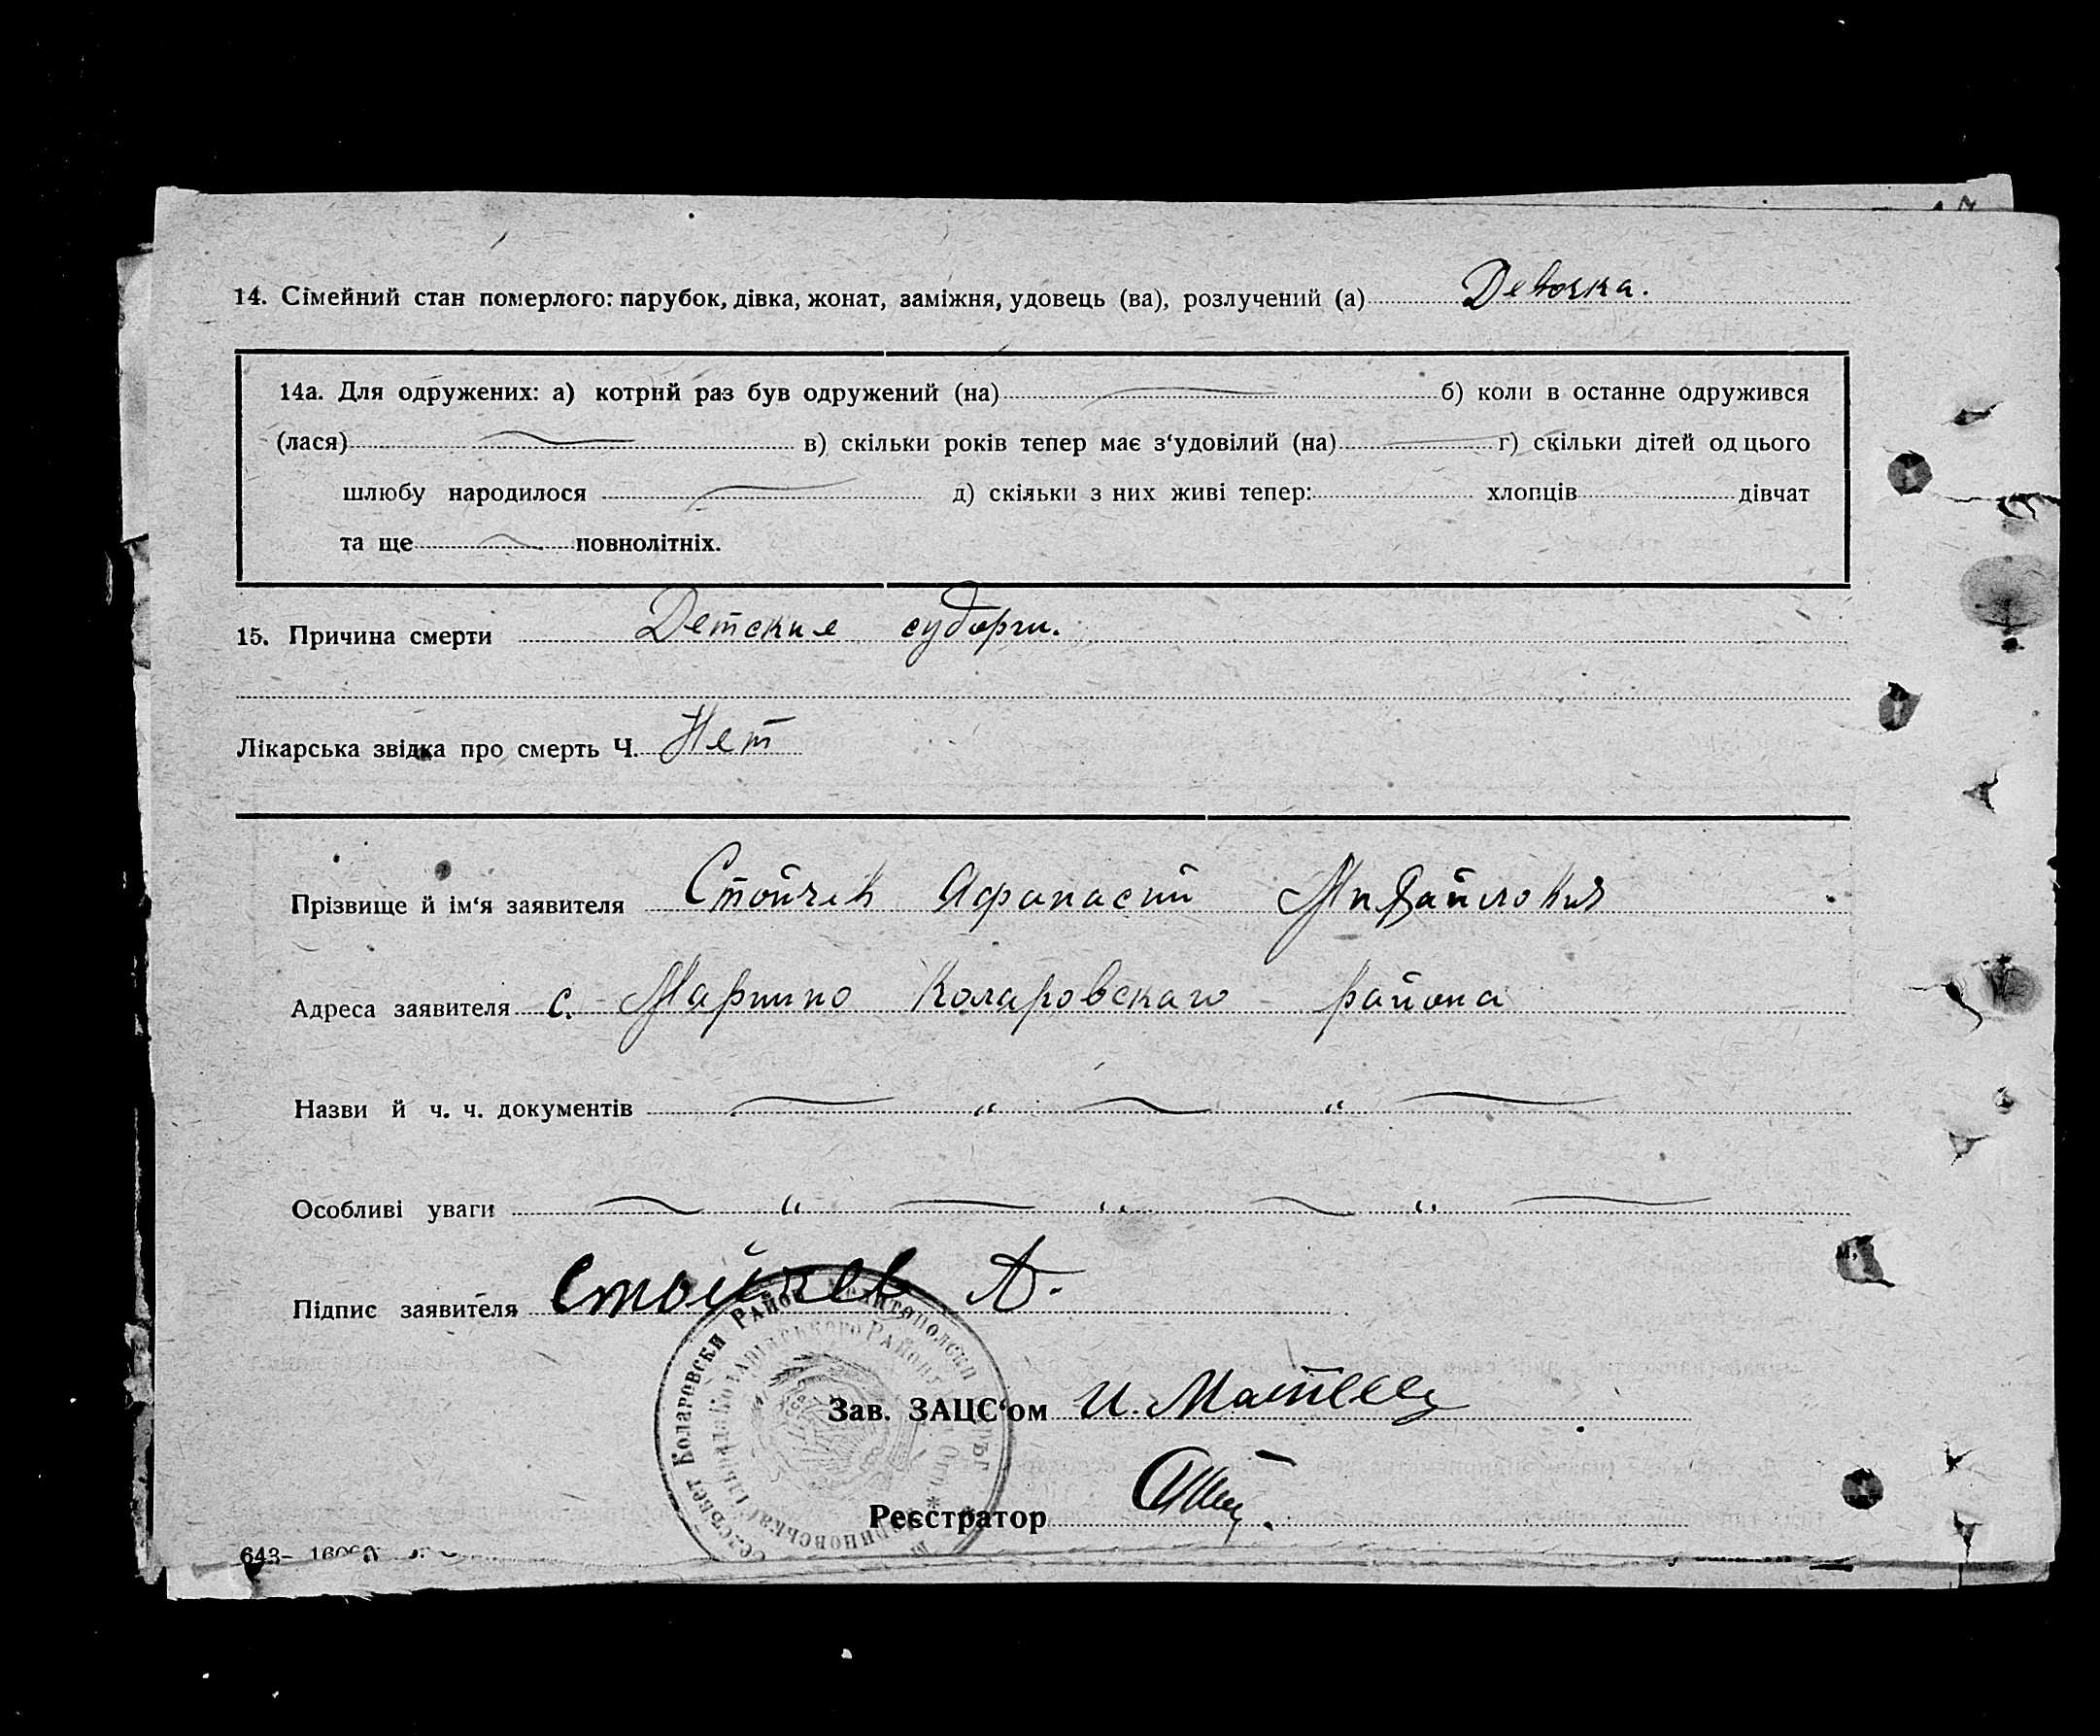 14. Сімейний стан померлого: парубок, дівка, жонат, заміжня, удовець (ва), розлучений (а) Девочка.
14а. Для одружених: а) котрий раз був одружений (на) б) коли в останне одружився
(лася) в) скільки років тепер має з‘удовілий (на) г) скільки дітей од цього
шлюбу народилося д) скільки з них живі тепер: хлопців дівчат
та ще повнолітніх.
15. Причина смерти Детские судорги.
Лікарська звідка про смерть Ч. Нет
Прізвище й ім‘я заявителя Стойчев Афанасий Михайлович
Адреса заявителя с. Марино Коларовскаго района
Назви й ч. ч. документів „ „
Особливі уваги „ „ „
Підпис заявителя Стойчев А.
Коларевски Район Мелитополски
Зав. ЗАЦС‘ом И.
Реєстратор
643–